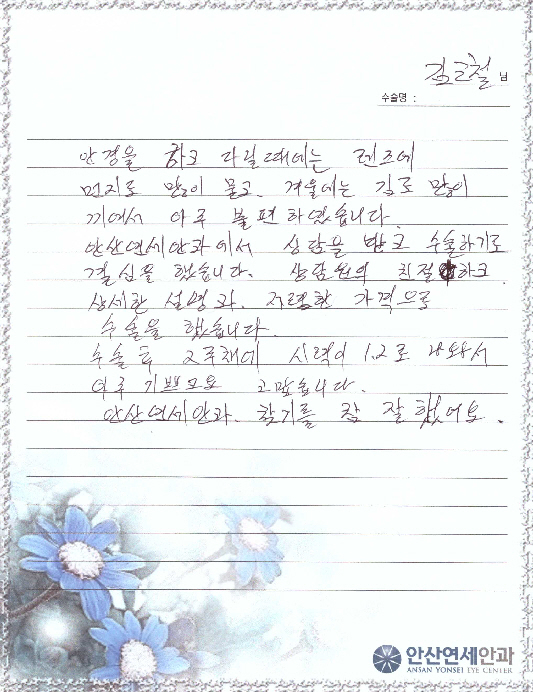 김 철 님
수술명 :
안경을 하고 다닐때에는 렌즈에
먼지도 많이 묻고, 겨울에는 김도 많이
끼어서 아주 불편하였습니다.
안산연세안과에서 상담을 받고 수술하기로
결심을 했습니다. 상담원의 친절하고
상세한 설명과. 저렴한 가격으로
수술을 했습니다.
수술후 2주째에 시력이 1.2로 나와서
아주 기쁘고요 고맙습니다.
안산연세안과. 찾기를 참 잘 했어요.
안산연세안과
ANSAN YONSEI EYE CENTER